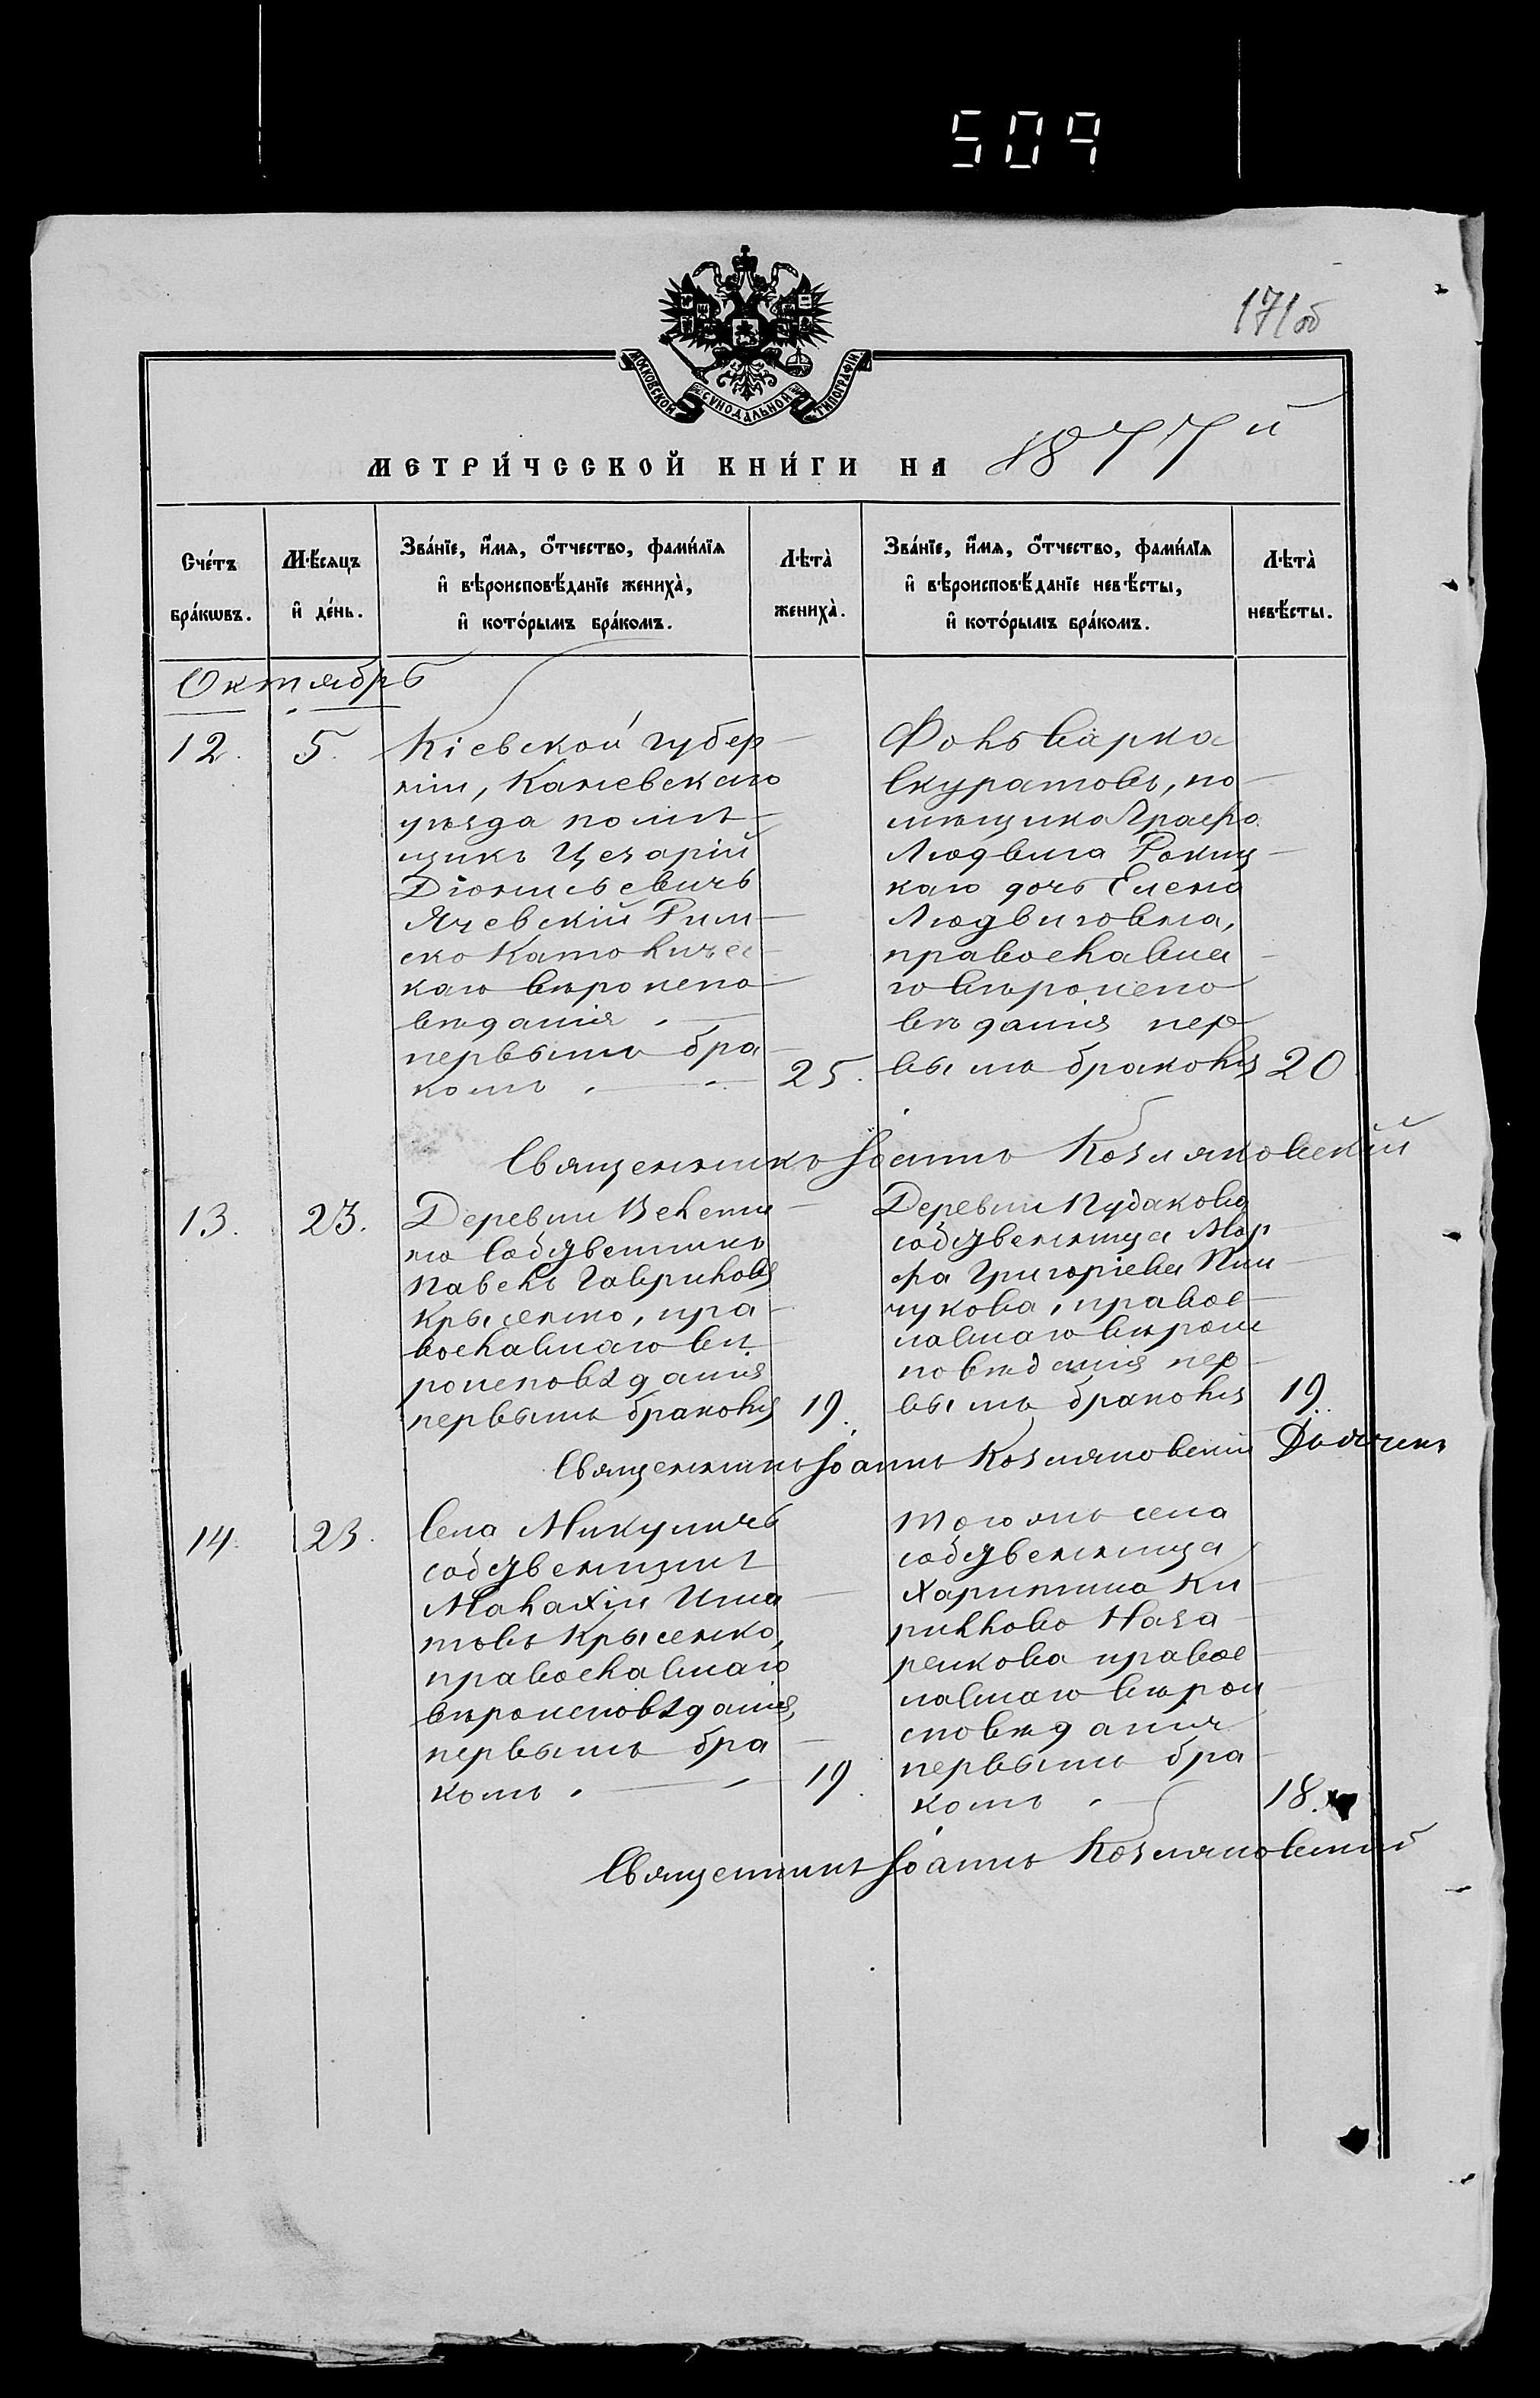 509
171об
МОСКОВСКОЙ СѴНОДАЛЬНОЙ ТИПОГРАФІИ
МЕТРИ́ЧЕСКОЙ КНИ́ГИ НА 1877й
Сче́тъ бра́кѡвъ.
Мѣ́сяцъ и҆ де́нь.
Зва́нїе, и҆́мѧ, ѻ҆́тчество, фами́лїѧ
и҆ вѣроисповѣ́данїе жениха̀,
и҆ кото́рымъ бра́комъ.
Лѣта̀ жениха̀.
Зва́нїе, и҆́мѧ, ѻ҆́тчество, фами́лїѧ
и҆ вѣроисповѣ́данїе невѣ́сты,
и҆ кото́рымъ бра́комъ.
Лѣта̀ невѣ́сты.
Октябрь
12. 5.
Кіевской губер-
ніи, Каневскаго
уѣзда помѣ-
щикъ Цезарій
Діонисьевичъ
Ячевскій Рим-
ско Католичес-
каго вѣроиспо-
вѣданія
первымъ бра-
комъ 25.
Фольварка
Скуратовъ, по-
мѣщика Графа
Людвига Рокиц-
каго дочь Елена
Людвиговна,
православна-
го вѣроиспо-
вѣданія пер-
вымъ бракомъ 20
Священникъ Іоаннъ Козляковскій
13. 23.
Деревни Велети-
на собственникъ
Павелъ Гавриловъ
Крысенко, пра-
вославнаго вѣ-
роисповѣданія
первымъ бракомъ 19.
Деревни Рудакова
собственница Мар-
фа Григоріева Пин-
чукова, правос-
лавнаго вѣроис-
повѣданія пер-
вымъ бракомъ 19.
Священникъ Іоаннъ Козляковскій
14. 23.
Села Микуличъ
собственникъ
Малахій Игна-
товъ Крысенко,
православнаго
вѣроисповѣданія,
первымъ бра-
комъ 19.
Того жъ села
собственница
Харитина Ки-
риллова Наза-
ренкова правос-
лавнаго вѣрои-
сповѣданія
первымъ бра-
комъ 18.
Священникъ Іоаннъ Козляковскій